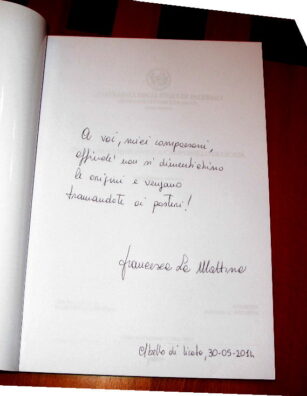 A voi, miei compaesani,
affinché non si dimentichino
le origini e vengano
tramandate ai posteri!
Francesca La Mattina
di Licata, 30-05-2014